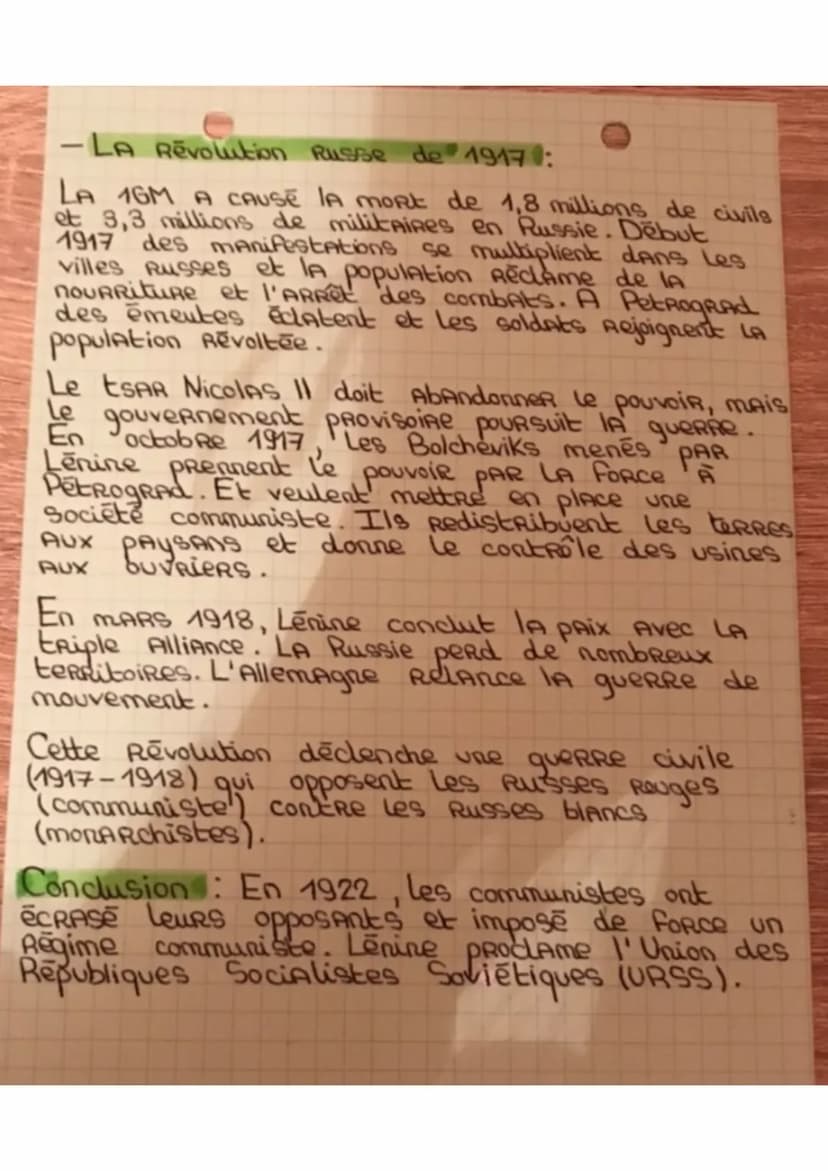 - LA Révolution Russe de 1917 :
LA 1GM A CAUSÉ lA mort de 1,8 millions de civils
et 3,3 millions de militaires en Russie. Début
1917 des manifestations se multiplient dans les
villes Russes et lA population Réclame de lA
nourriture et l'Arrêt des combats. A Petrograd
des émeutes éclatent et les soldats Rejoignent LA
population Révoltée.
Le tsar Nicolas II doit Abandonner le pouvoir, mais
le gouvernement provisoire poursuit lA guerre.
En octobre 1917, les Bolcheviks menés par
Lénine prennent le pouvoir par la force À
Pétrograd. Et veulent mettre en place une
société communiste. Ils redistribuent les terres
aux paysans et donne le contrôle des usines
aux ouvriers.
En mars 1918, Lénine conclut la paix avec la
triple Alliance. La Russie perd de nombreux
territoires. L'Allemagne relance la guerre de
mouvement.
Cette Révolution déclenche une guerre civile
(1917-1918) qui opposent les Russes Rouges
(communiste) contre les Russes blancs
(monarchistes).
Conclusion : En 1922, les communistes ont
écrasé leurs opposants et imposé de force un
Régime communiste. Lénine proclame l'Union des
Républiques Socialistes Soviétiques (URSS).